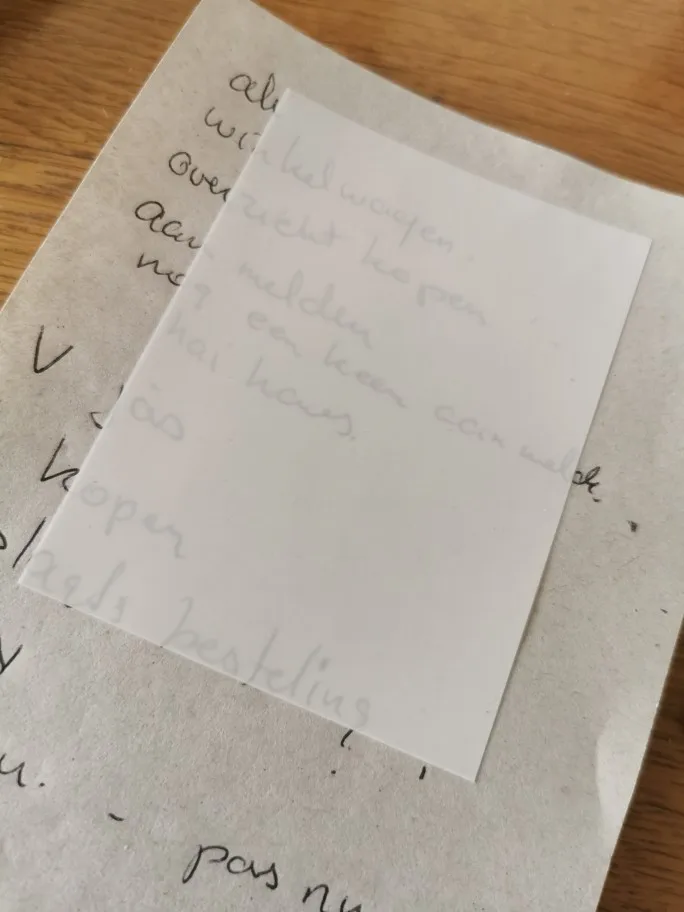 winkelwagen.
overzicht kopen
aanmelden
nog een keer aanmelde.
V
kopen
plaats besteling
!
- pas nu